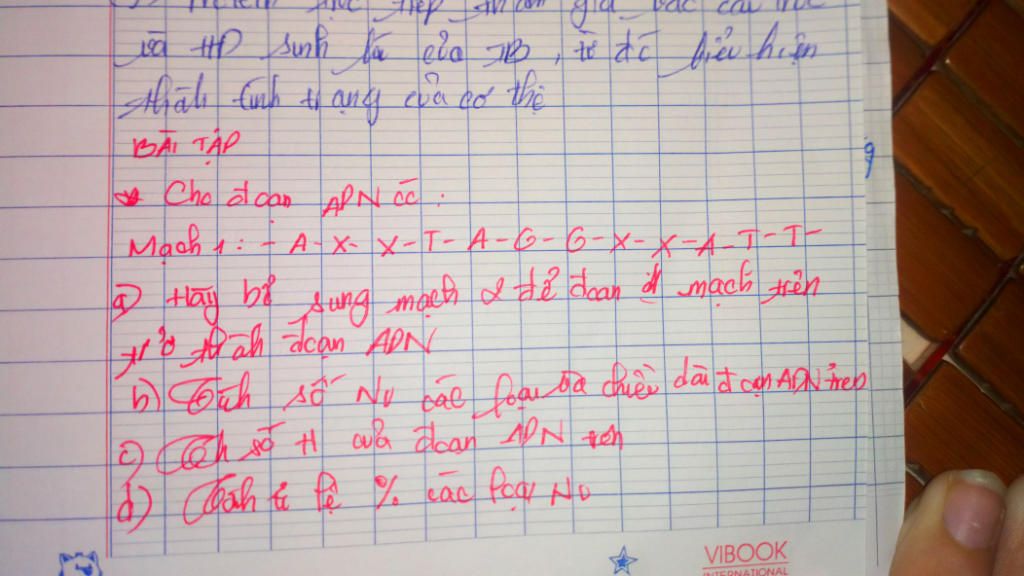 và HP sinh lí của TB, từ đó biểu hiện
thành tính trạng của cơ thể
BÀI TẬP
Cho đoạn ADN có:
Mạch 1: - A - X - X - T - A - G - G - X - X - A - T - T -
a) Hãy bổ sung mạch 2 để đoạn mạch trên
trở thành đoạn ADN
b) Tính số Nu các loại và chiều dài đoạn ADN trên
c) Tính số H của đoạn ADN trên
d) Tính tỉ lệ % các loại Nu
9
VIBOOK
INTERNATIONAL